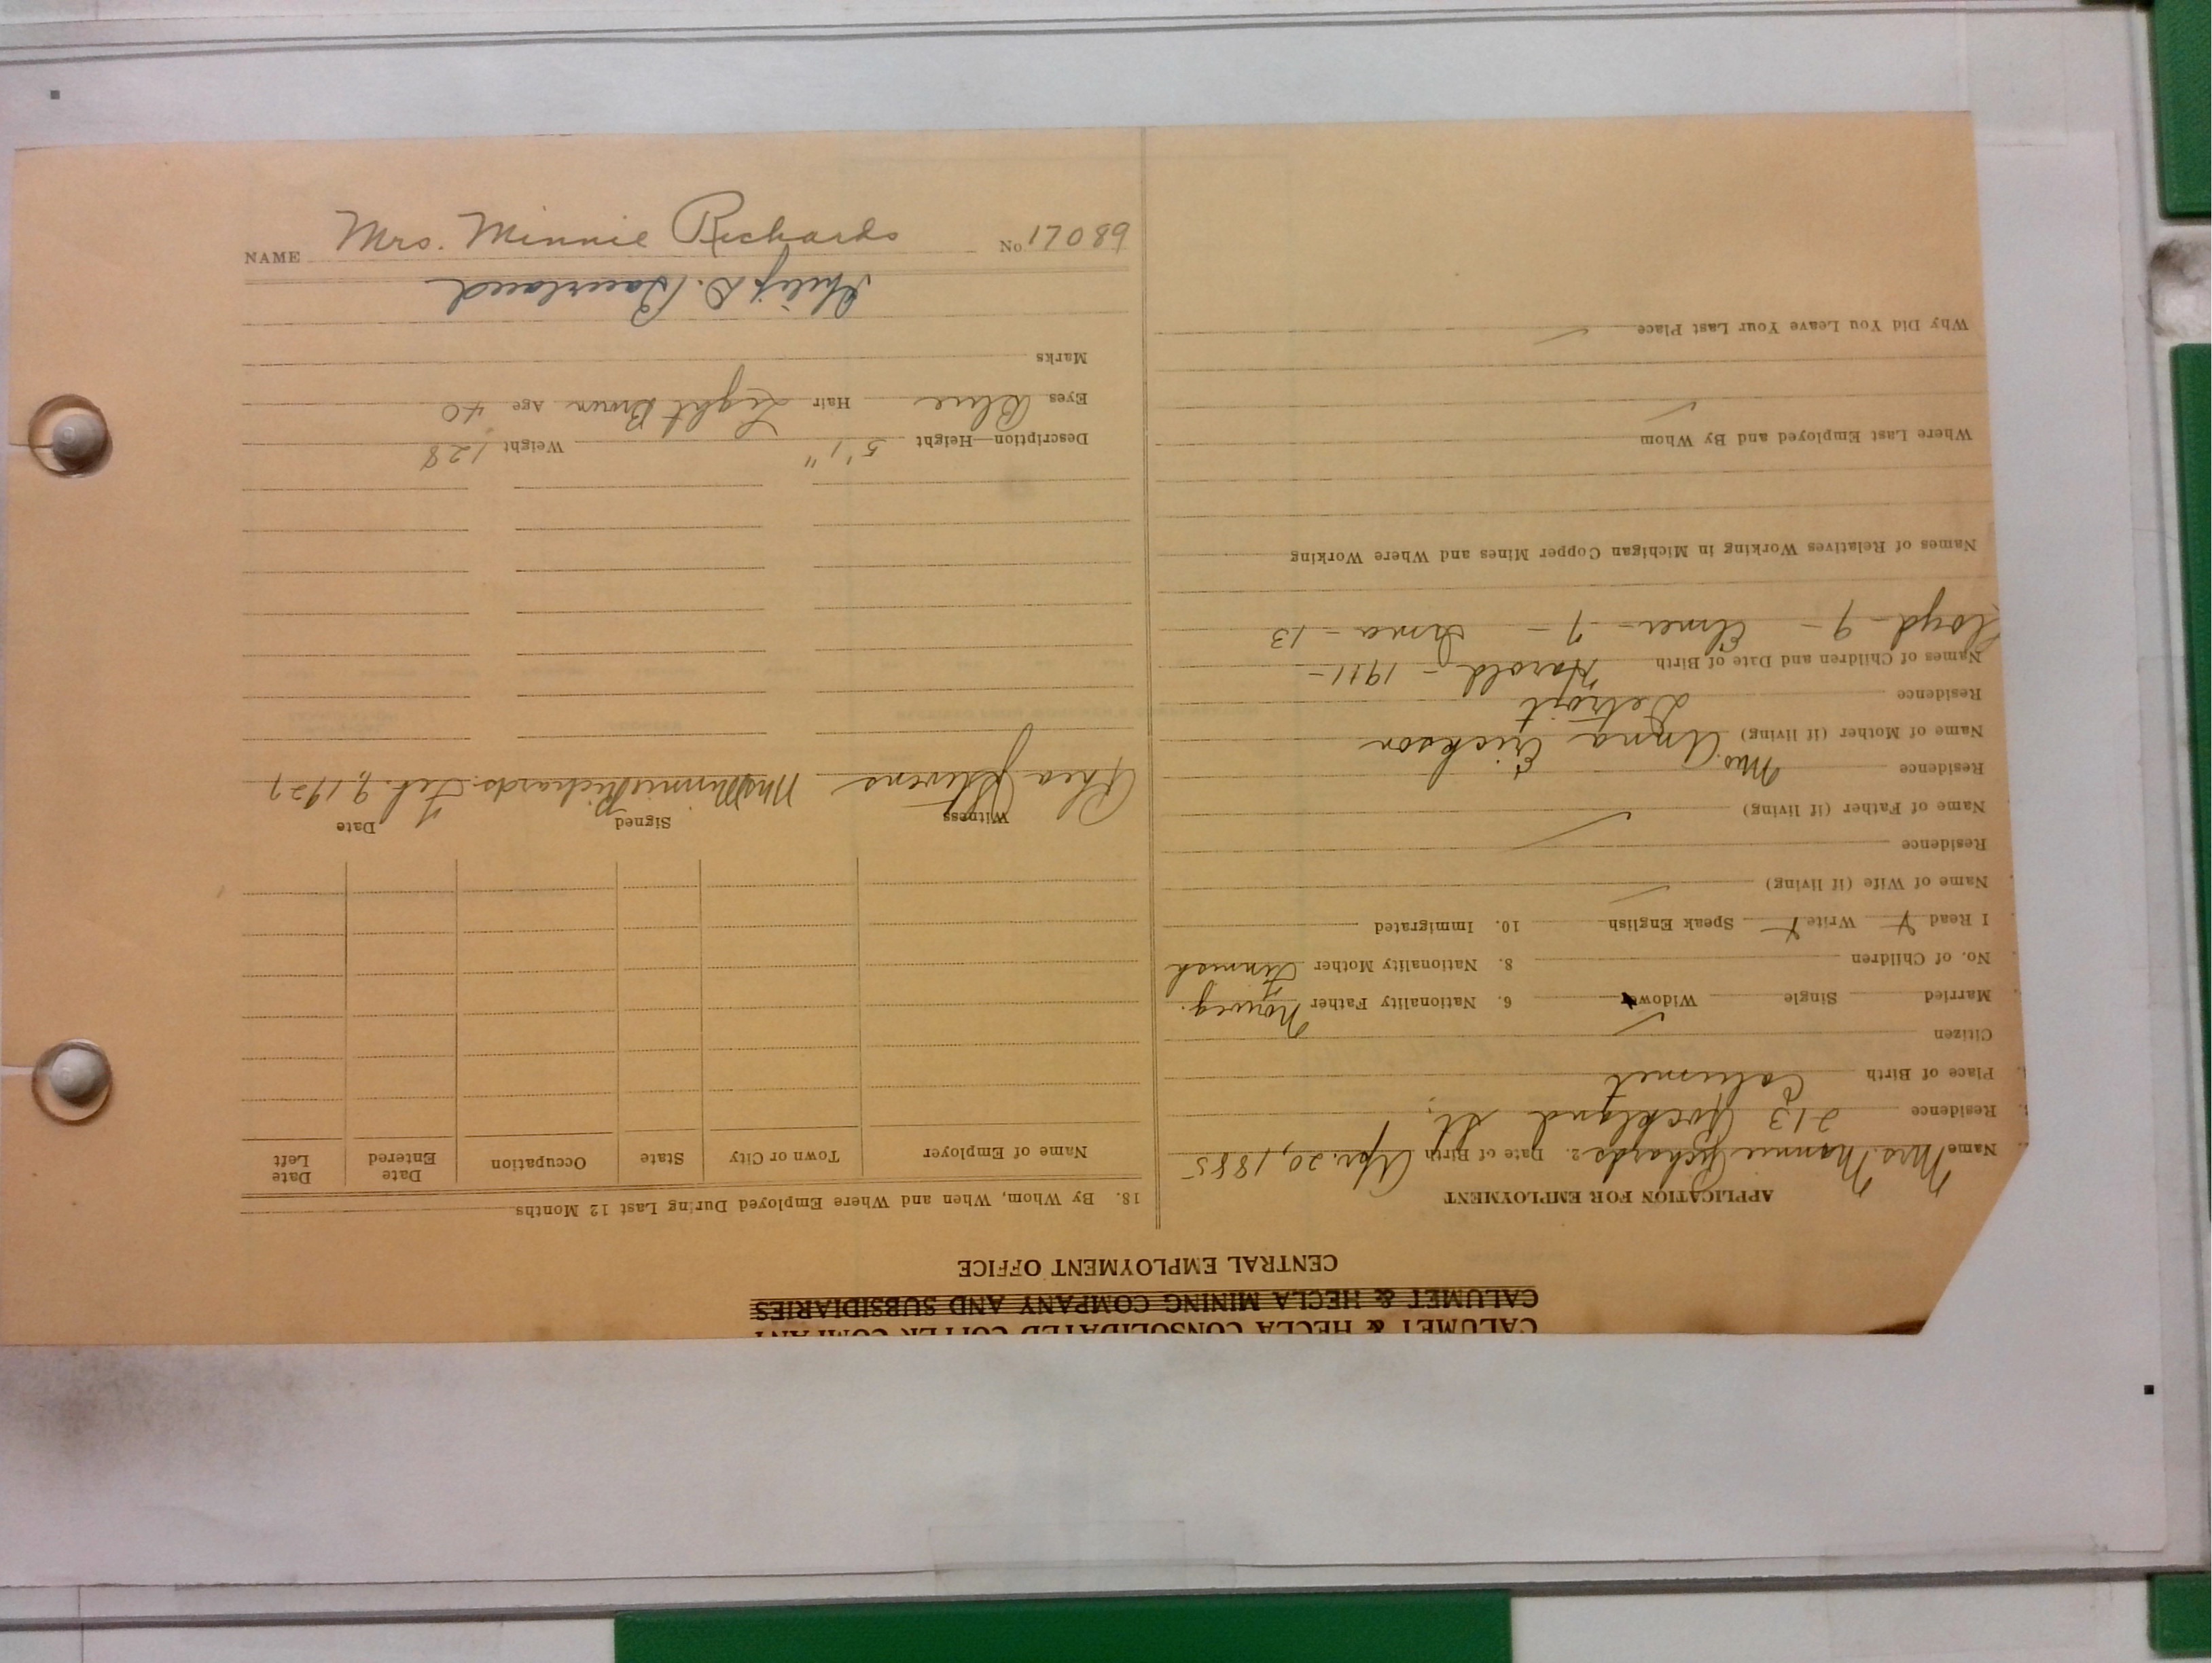 NAME Mrs. Minnie Richards No. 17089
CALUMET & HECLA CONSOLIDATED COPPER COMPANY
CALUMET & HECLA MINING COMPANY AND SUBSIDIARIES
CENTRAL EMPLOYMENT OFFICE
APPLICATION FOR EMPLOYMENT
Name Mrs. Minnie Richards 2. Date of Birth Apr. 20, 1885
Residence 213 Rockland St.
Place of Birth Calumet
Citizen ✓
Married Single Widower 6. Nationality Father Norweg.
No. of Children 8. Nationality Mother Finnish
I Read Write Speak English 10. Immigrated
Name of Wife (if living) ✓
Residence ✓
Name of Father (if living) ✓
Residence
Name of Mother (if living) Mrs. Anna Erickson
Residence Detroit
Names of Children and Date of Birth Harold - 1911 -
Lloyd - 9 - Elmer - 7 - Irma - 13
Names of Relatives Working in Michigan Copper Mines and Where Working
Where Last Employed and By Whom ✓
Why Did You Leave Your Last Place ✓
18. By Whom, When and Where Employed During Last 12 Months
Name of Employer Town or City State Occupation Date Entered Date Left
Witness Signed Date
Rhea Stevens Mrs Minnie Richards. Feb. 9, 1927
Description—Height 5'1" Weight 128
Eyes Blue Hair Light Brown Age 40
Marks
Philip D.